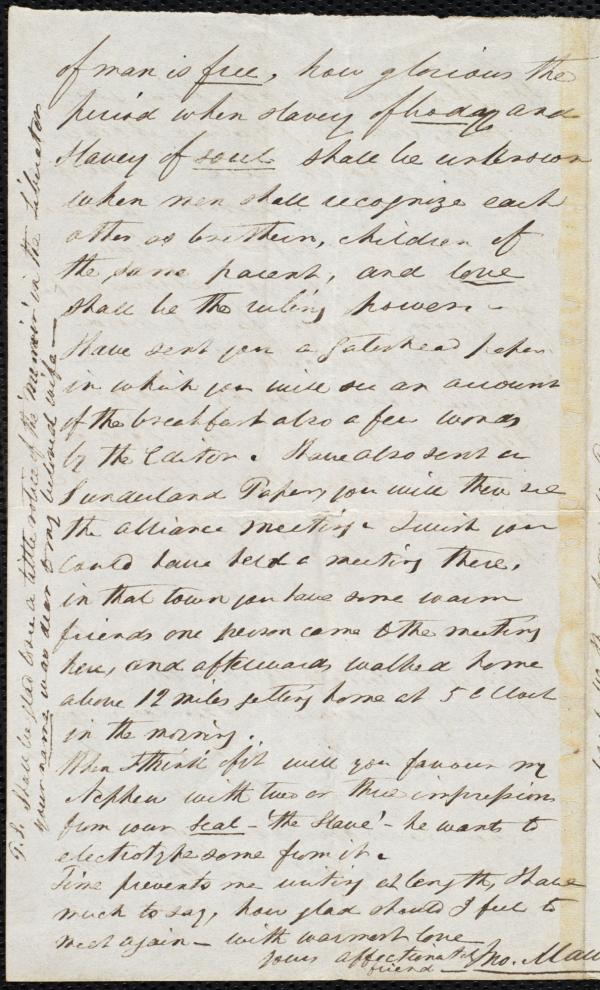 of man is free, how glorious the
period when slavery of body and
slavery of soul shall be unknown
when men shall recognize each
other as brethren, children of
the same parent, and love
shall be the ruling power. -
Have sent you a Gateshead paper
in which you will see an account
of the breakfast also a few words
by the Editor. Have also sent a
Sunderland Paper, you will then see
the alliance meeting. I wish you
could have held a meeting there,
in that town you have some warm
friends one person came to the meeting
here, and afterwards walked home
above 12 miles getting home at 5 O Clock
in the morning.
When I think of it will you favour my
Nephew with two or three impressions
from your Seal - 'the Slave' - he wants to
electrotype some from it.
Time prevents me writing at length, I have
much to say, how glad should I feel to
meet again - with warmest love
yours affectionately
friend - Jno. Maw
P.S. Shall be glad to see a little notice of the 'memoir' in the Liberator
your name was dear to my beloved wife -